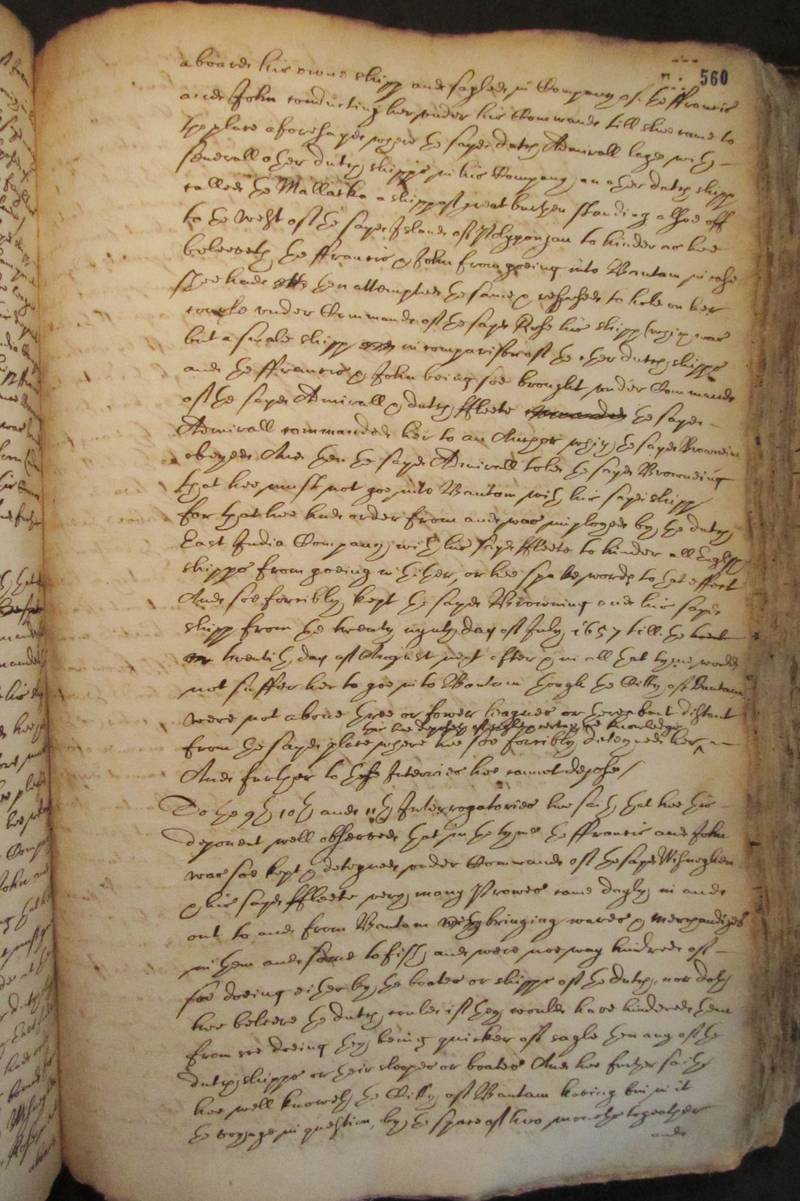 560
aboarde his owne shipp and sayled in Company of the ffrancis
and John conducting her under his Commande till shee came to
the place aforesayd where the sayd dutch Admirall laye with
severall other dutch shipps in his Company, an other dutch shipp
called the Mallacka a shipp of great burthen standing alsoe off
to the West of the sayd Islands of to hinder as hee
beleeveth the ffrancis & John from goeing into Bantam in case
shee had then attempted the same & refused to hale on her
under Commande of the sayd his shipp (which was
but a smale shipp in comparison of the other dutch shipps
and the ffrancis & John being soe brought under Commande
of the sayd Admirall & dutch ffleete the sayd
Admirall commanded her to an Anchor which the sayd Browning
obeyed And then the sayd Admirall tolde the sayd Browning
that hee must not goe into Bantam with his sayd shipp
for that hee had order from and was imployed by the dutch
East India Company with his sayd ffleete to hinder all English
shipps from goeing thither, or hee spake words to that effect
And soe forcibly kept the sayd Browning and his sayd
shipp from the twenty eighth day of July 1657 till the
twentith day of August next after & in all that tyme would
not suffer her to goe into Bantam though the Citty of Bantam
were not above three or fower leagues or thereabout distant
from the sayd place where hee soe forcibly deteyned her
And further to theis Interries hee cannot depose/
To the 9th 10th and 11th Interrogatories hee saith that hee this
deponent well observed that in the tyme the ffrancis and John
was soe kept & deteyned under Commande of the sayd
& his sayd ffleete very many Prowes came dayly in and
out to and from Bantam bringing wares & merchandizes
in them and some to fish, and were noe way hindred of
soe doeing either by the boates or shipps of the dutch, nor doth
hee beleeve the dutch could if they would have hindered them
from soe doeing they being quicker of sayle then any of the
dutch shipps or their sloopes or boates And hee further saith
hee well knoweth the Citty of Bantam having bin in it
the voyage in question, by the space of two moneths together
and